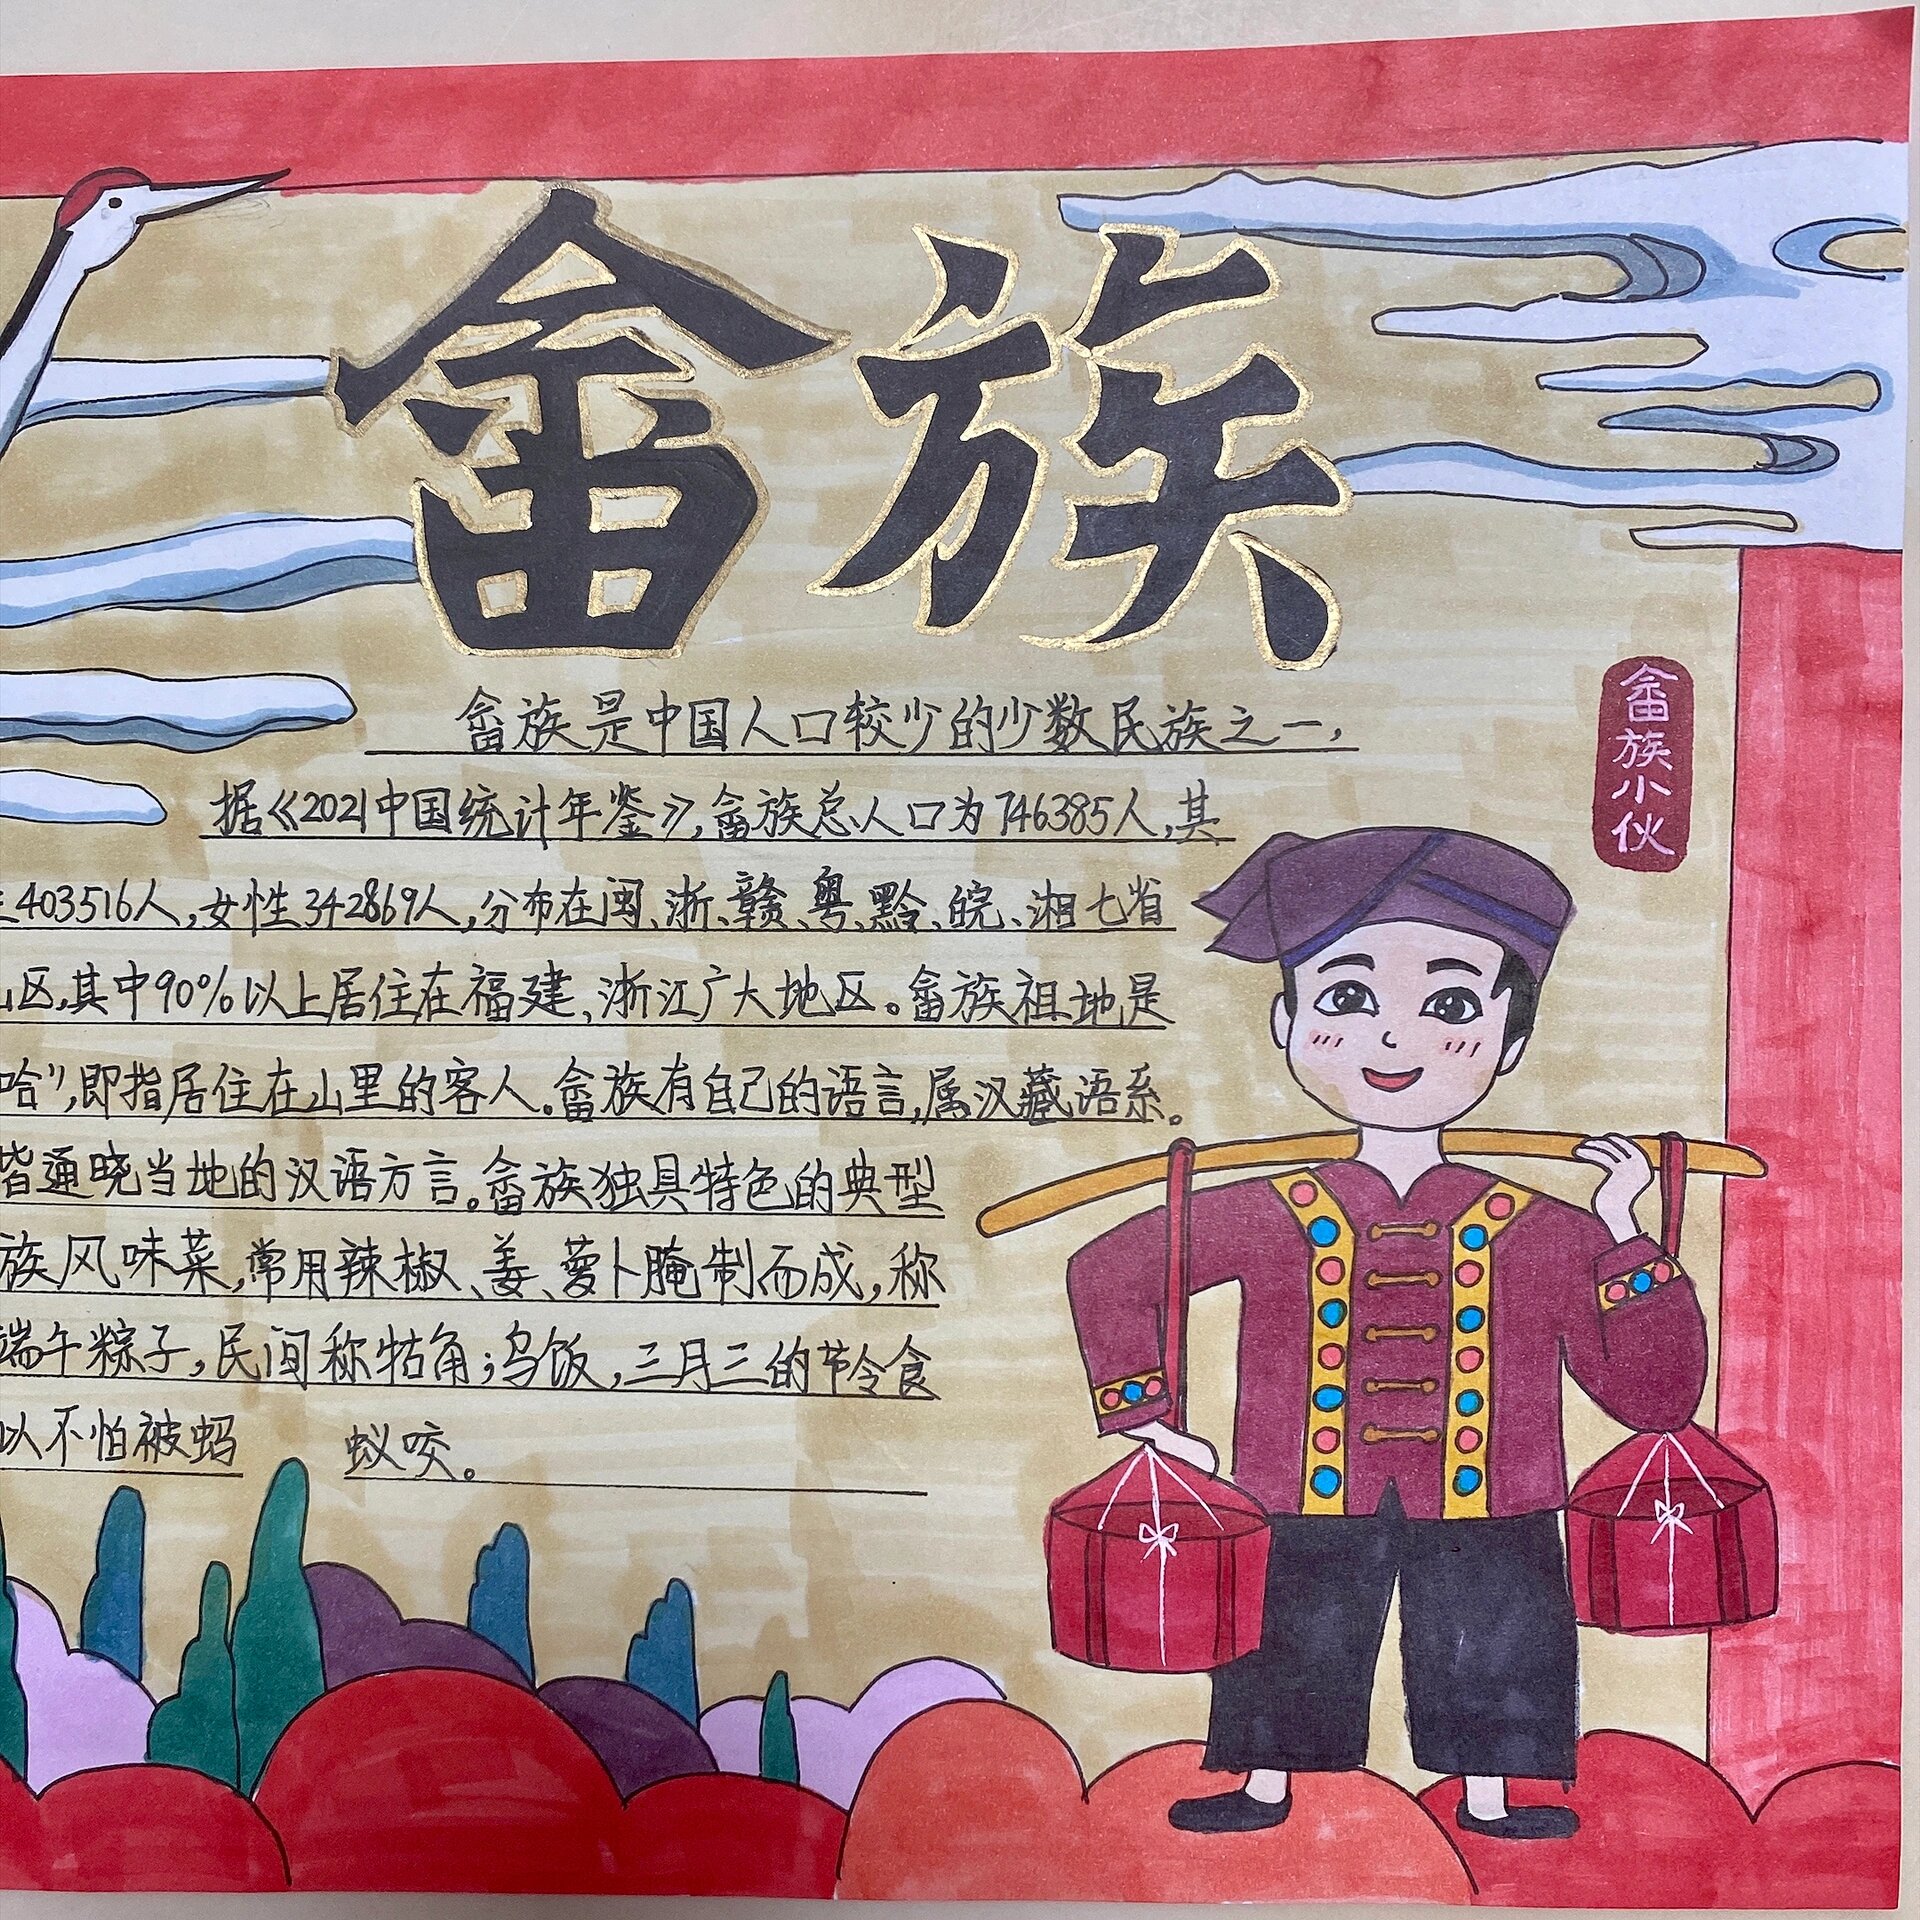 畲族
畲族是中国人口较少的少数民族之一,
据《2021中国统计年鉴》,畲族总人口为746385人,其
403516人,女性342869人,分布在闽、浙、赣、粤、黔、皖、湘七省
区,其中90%以上居住在福建、浙江广大地区。畲族祖地是
哈”,即指居住在山里的客人。畲族有自己的语言,属汉藏语系。
皆通晓当地的汉语方言。畲族独具特色的典型
族风味菜,常用辣椒、姜、萝卜腌制而成,称
端午粽子,民间称牯角;乌饭,三月三的节令食
以不怕被蚂 蚁咬。
畲族小伙